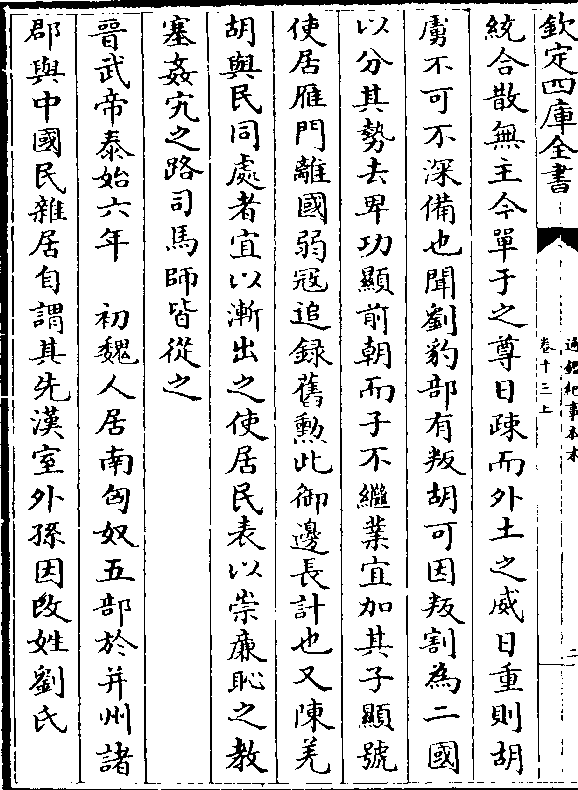 欽定四庫全書
通鑑紀事本末
卷十三上
二
統合散無主今單于之尊日疎而外土之威日重則胡
虜不可不深備也聞劉豹部有叛胡可因叛割為二國
以分其勢去卑功顯前朝而子不繼業宜加其子顯號
使居雁門離國弱冦追録舊勲此御邊長計也又陳羌
胡與民同處者宜以漸出之使居民表以崇廉恥之教
塞姦宄之路司馬師皆從之
晉武帝泰始六年　初魏人居南匈奴五部於并州諸
郡與中國民雜居自謂其先漢室外孫因改姓劉氏